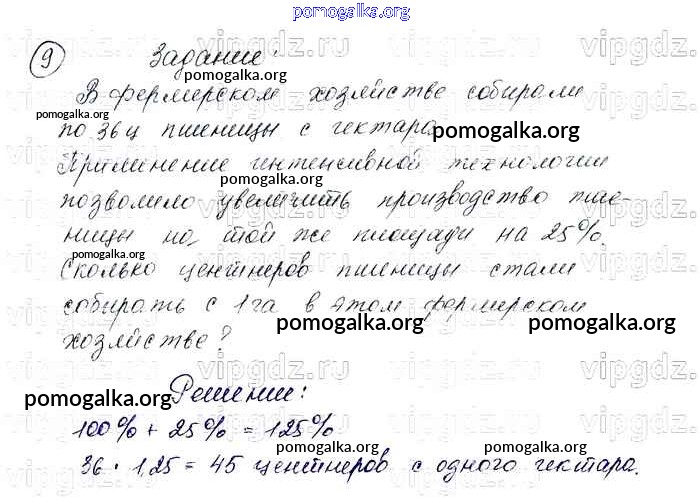 pomogalka.org
9 Задание:
pomogalka.org
В фермерском хозяйстве собирали
pomogalka.org
по 36 ц пшеницы с гектара.
pomogalka.org
Применение интенсивной технологии
pomogalka.org
позволило увеличить производство пше-
pomogalka.org
ницы на той же площади на 25%.
pomogalka.org
Сколько центнеров пшеницы стали
собирать с 1 га в этом фермерском
pomogalka.org pomogalka.org
хозяйстве?
Решение:
pomogalka.org
100% + 25% = 125%
pomogalka.org
36 · 1,25 = 45 центнеров с одного гектара.
pomogalka.org
vipgdz.ru vipgdz.ru vipgdz.